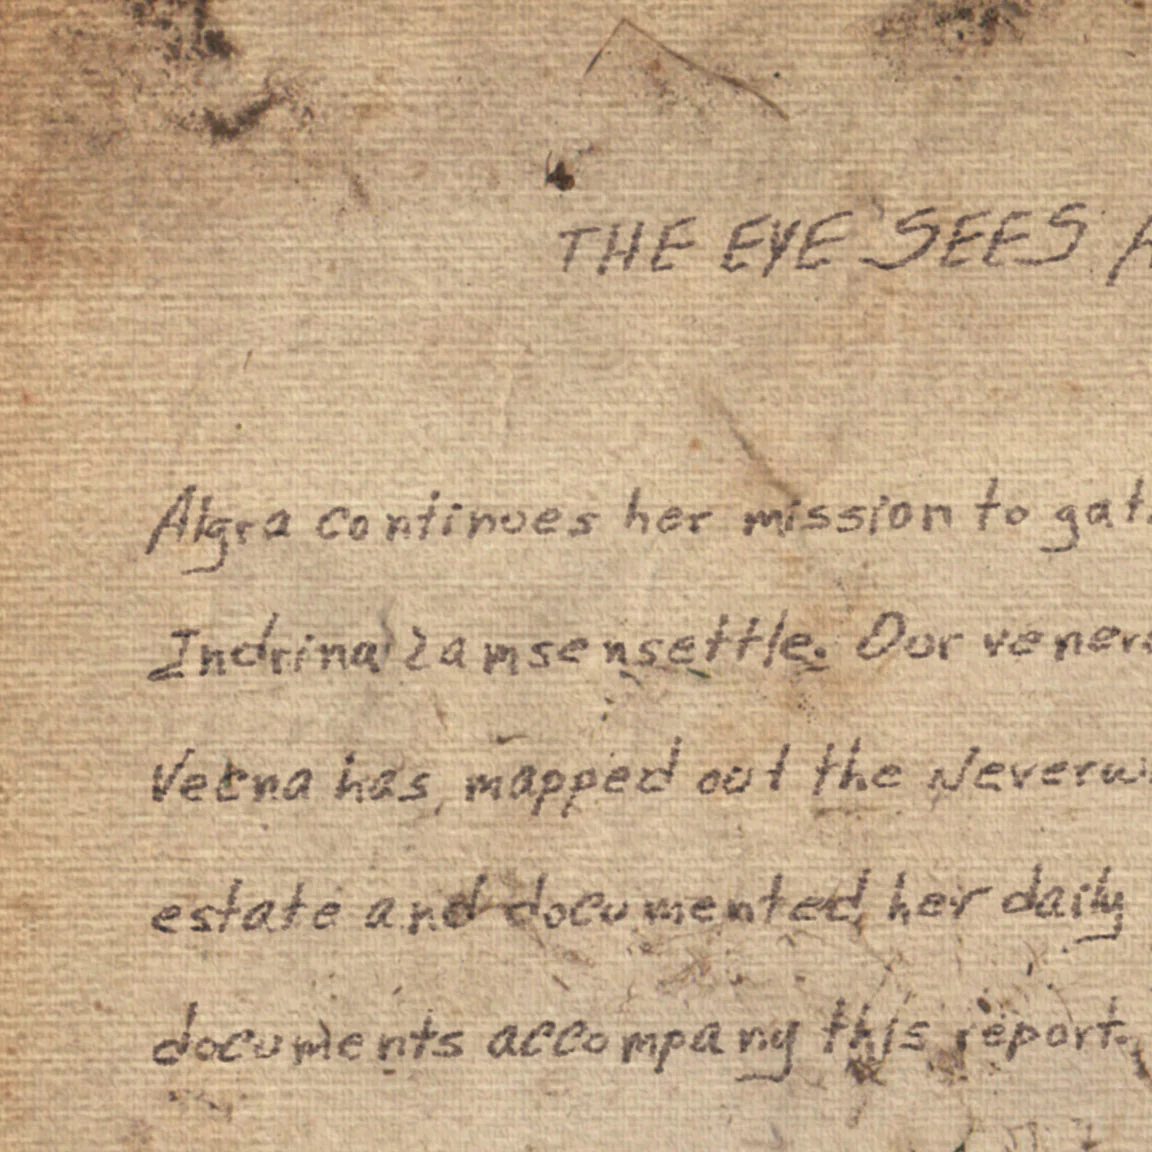 THE EYE SEES A
Algra continues her mission to gat
Indrina Lamsensettle. Our venera
Vecna has mapped out the Neverwi
estate and documented her daily
documents accompany this report.